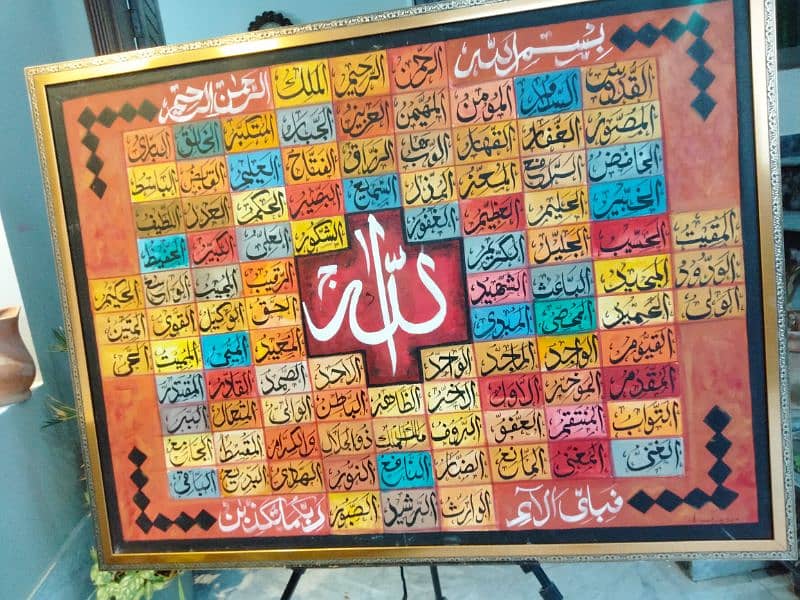 بسم الله الرحمن الرحيم الملك الرحمن الرحيم
القدوس السلام المؤمن المهيمن العزيز الجبار المتكبر الخالق الباري
المصور الغفار القهار الوهاب الرزاق الفتاح العليم القابض الباسط
الخافض الرافع المعز المذل السميع البصير الحكم العدل اللطيف
الخبير الحليم العظيم الغفور الشكور العلي الكبير الحفيظ
المقيت الحسيب الجليل الكريم الرقيب المجيب الواسع الحكيم
الله
الودود المجيد الباعث الشهيد الحق الوكيل القوي المتين
الولي الحميد المحصي المبدي المعيد المحيي المميت الحي
القيوم الواجد الماجد الواحد الاحد الصمد القادر المقتدر
المقدم المؤخر الاول الاخر الظاهر الباطن الوالي المتعال البر
التواب المنتقم العفو الروف مالك الملك ذوالجلال والاكرام المقسط الجامع
الغني المغني المانع الضار النافع النور الهادي البديع الباقي
فباى الآء الوارث الرشيد الصبور ربكما تكذبن